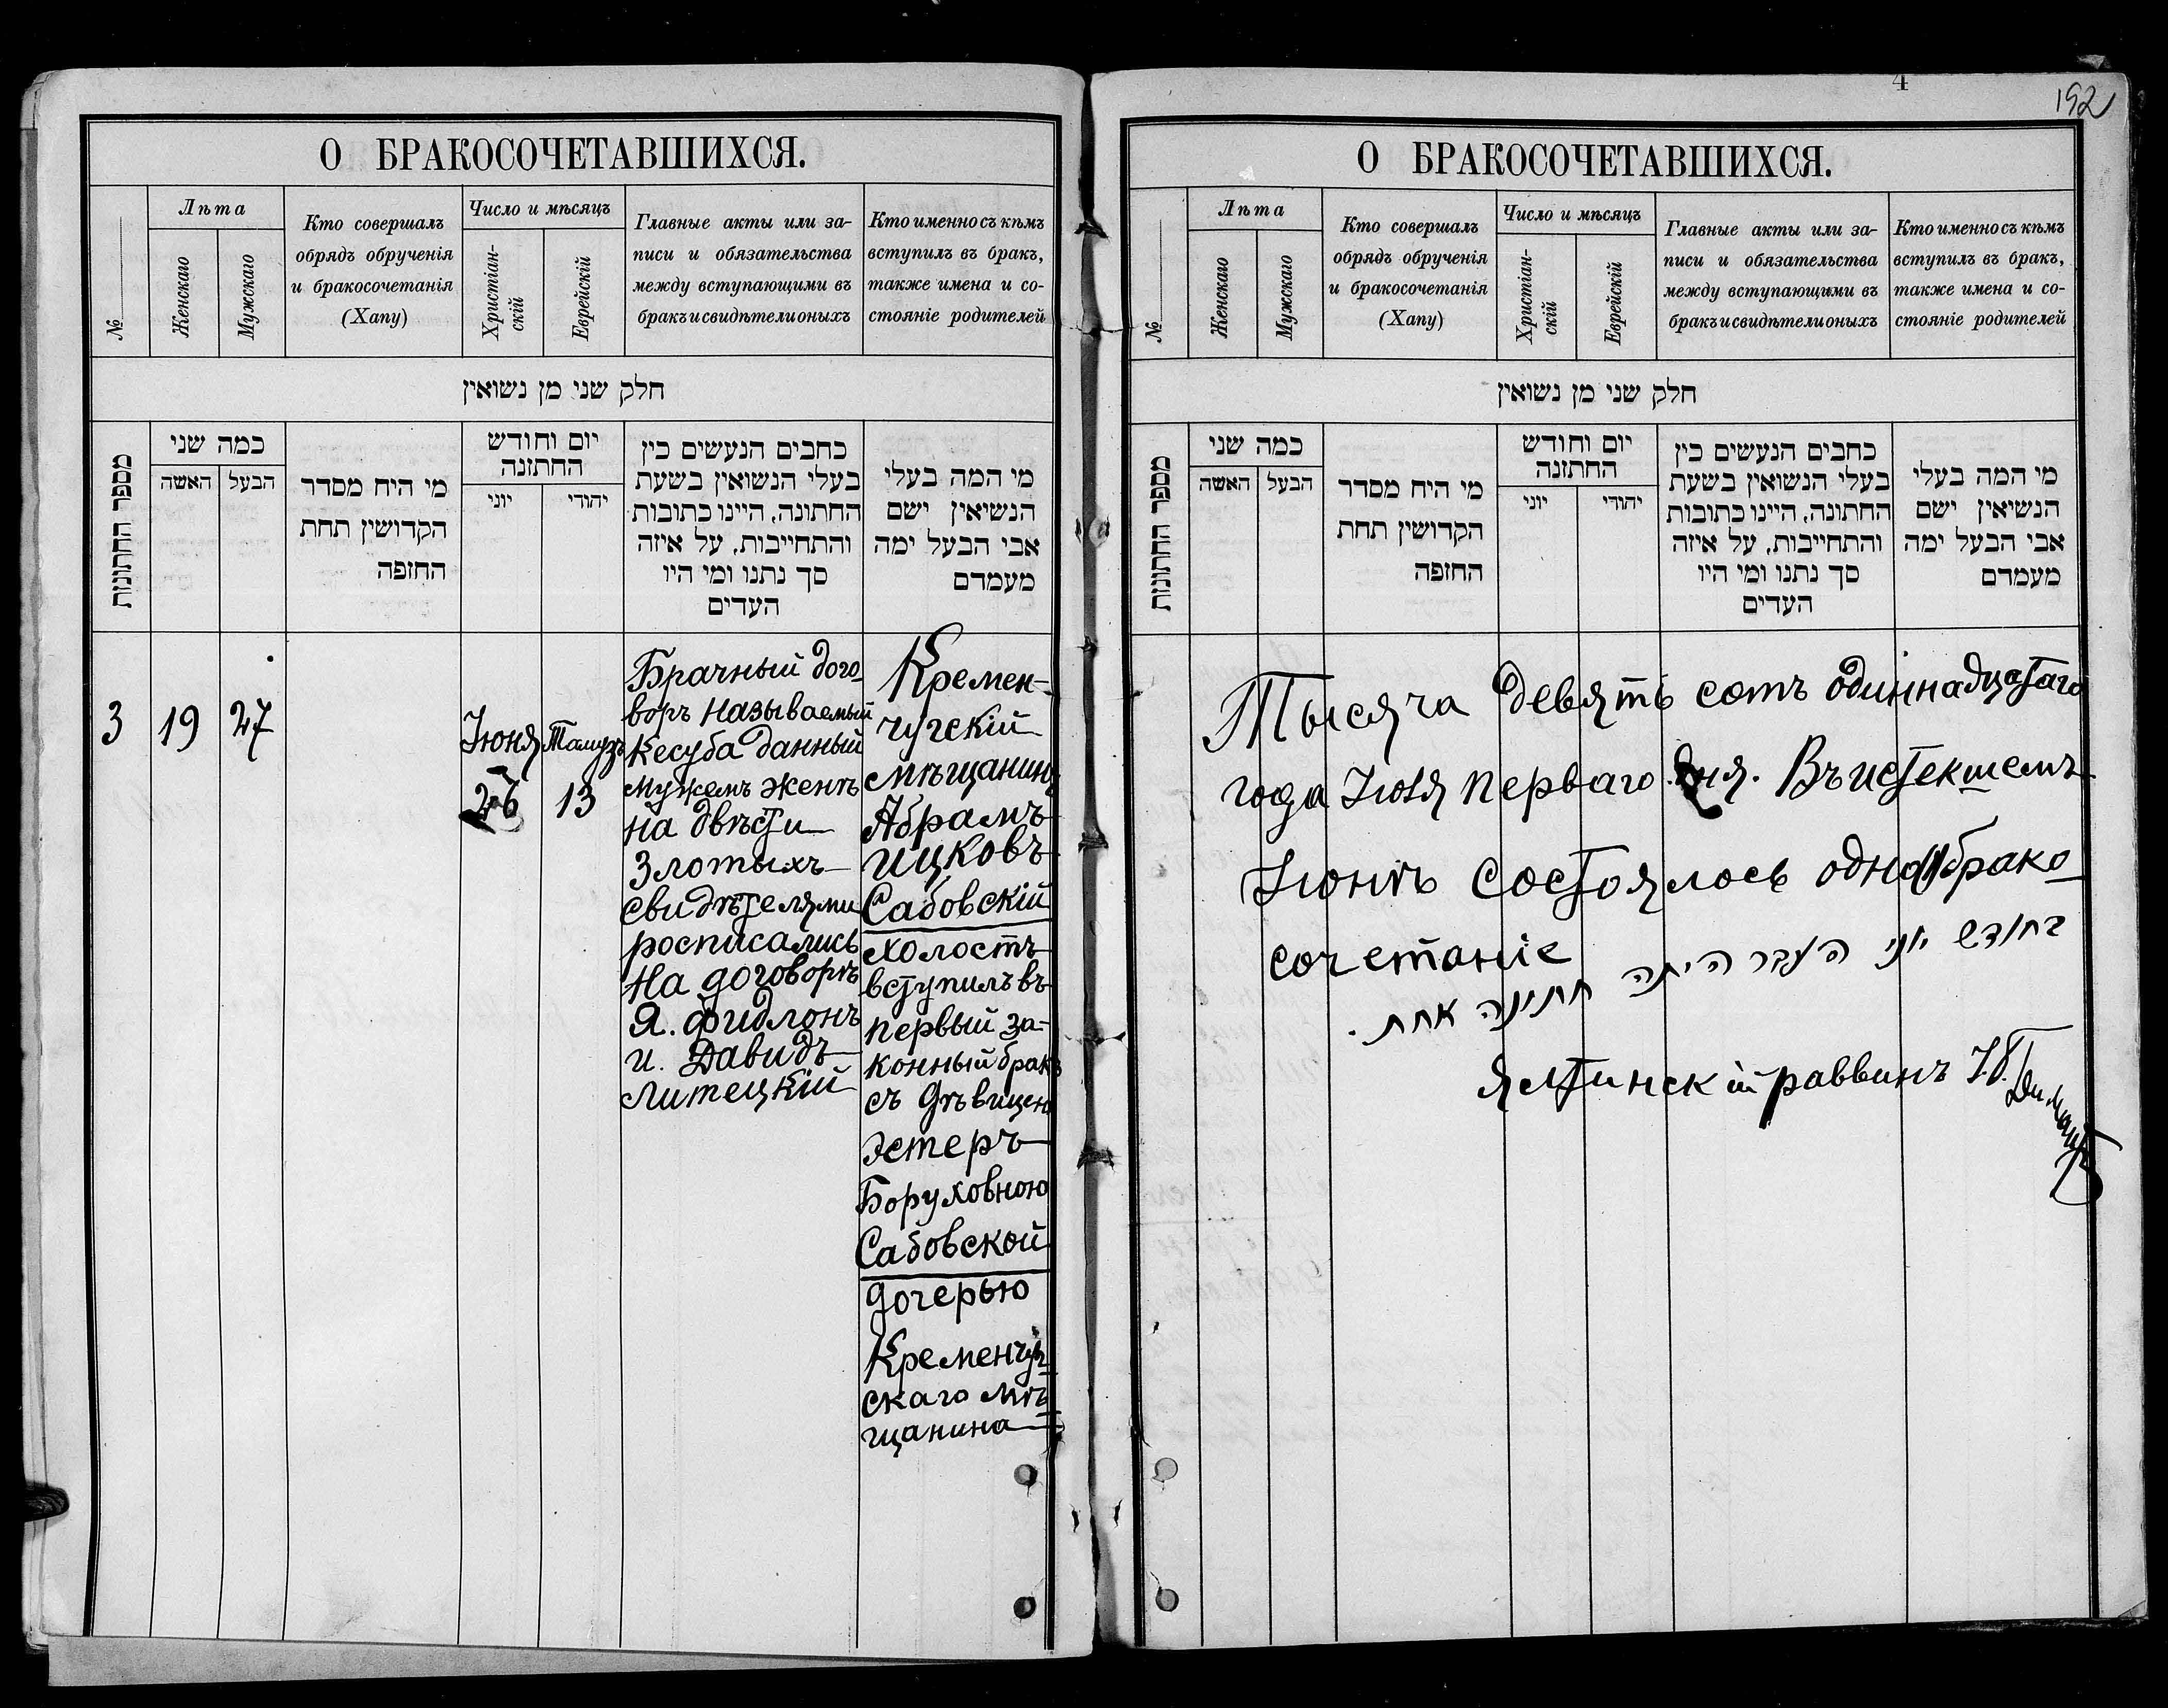 4
192
О БРАКОСОЧЕТАВШИХСЯ.
№
Лѣта
Женскаго
Мужскаго
Кто совершалъ
обрядъ обрученія
и бракосочетанія
(Хапу)
Число и мѣсяцъ
Христіан-
скій
Еврейскій
Главные акты или за-
писи и обязательства
между вступающими въ
бракъ и свидѣтели оныхъ
Кто именно съ кѣмъ
вступилъ въ бракъ,
также имена и со-
стояніе родителей
חלק שני מן נשואין
מספר החתונות
כמה שני
האשה
הבעל
מי היח מסדר
הקדושין תחת
החופה
יום וחודש
החתונה
יוני
יהודי
כחבים הנעשים כין
בעלי הנשואין בשעת
החתונה, היינו כתובות
והתחייבות, על איזה
סך נתנו ומי היו
העדים
מי המה בעלי
הנשיאין ישם
אבי הבעל ימה
מעמדם
3
19
27
Іюня
26
Тамузъ
13
Брачный дого-
воръ называемый
Кесуба данный
мужемъ женѣ
на двѣсти
злотыхъ
свидѣтелями
росписались
на договорѣ
Я. Фидлонъ
и. Давидъ
Литецкій
Кремен-
чугскій
мѣщанинъ
Абрамъ
Ицковъ
Сабовскій
холостъ
вступилъ въ
первый за-
конный бракъ
съ дѣвицею
Эстеръ
Боруховною
Сабовской
дочерью
Кременчуг-
скаго мѣ-
щанина
О БРАКОСОЧЕТАВШИХСЯ.
№
Лѣта
Женскаго
Мужскаго
Кто совершалъ
обрядъ обрученія
и бракосочетанія
(Хапу)
Число и мѣсяцъ
Христіан-
скій
Еврейскій
Главные акты или за-
писи и обязательства
между вступающими въ
бракъ и свидѣтели оныхъ
Кто именно съ кѣмъ
вступилъ въ бракъ,
также имена и со-
стояніе родителей
חלק שני מן נשואין
מספר החתונות
כמה שני
האשה
הבעל
מי היח מסדר
הקדושין תחת
החופה
יום וחודש
החתונה
יוני
יהודי
כחבים הנעשים כין
בעלי הנשואין בשעת
החתונה, היינו כתובות
והתחייבות, על איזה
סך נתנו ומי היו
העדים
מי המה בעלי
הנשיאין ישם
אבי הבעל ימה
מעמדם
Тысяча девять сотъ одиннадцатаго
года Іюля перваго дня. Въ истекшемъ
Іюнѣ состоялось одно (1) брако-
сочетаніе
בחודש יוני העבר היתה
חתונה אחת.
Ялтинскій раввинъ